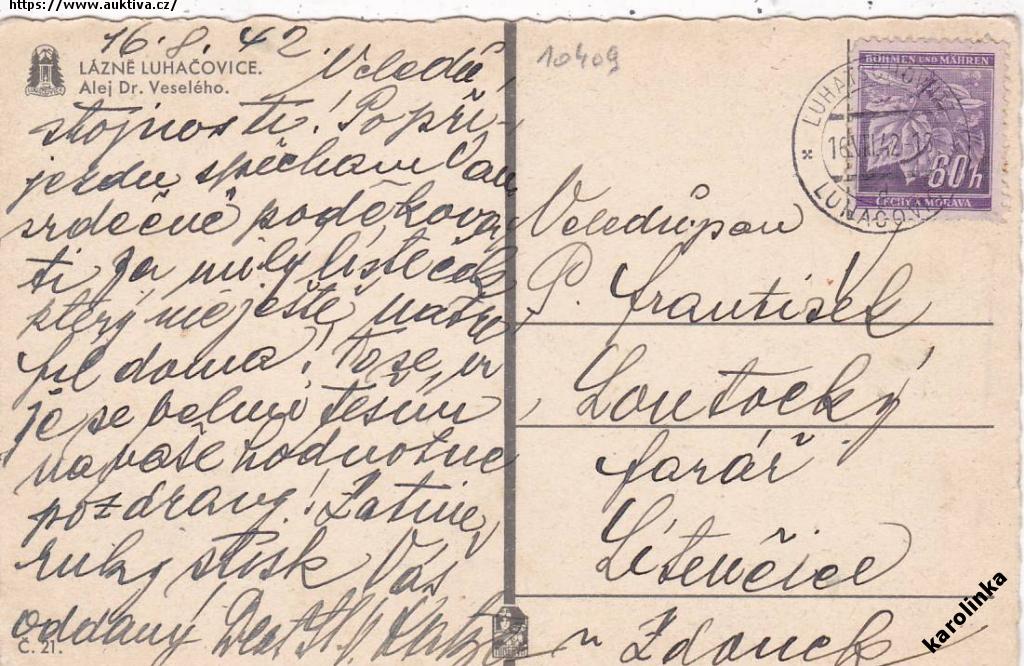 https://www.auktiva.cz/
16. 8. 42.
LÁZNĚ LUHAČOVICE.
Alej Dr. Veselého.
10409
Veledů-
stojnosti! Po pří-
jezdu spěchám Vám
srdečně poděkova-
ti za milý lísteček
který mě ještě zasti-
hl doma.
je se velmi těším
na vaše hodnotné
pozdravy! Zatím
ruky stisk Vás
oddaný
Č. 21.
BÖHMEN UND MÄHREN
60h
ČECHY A MORAVA
16.VIII.42-12
LUHAČOVICE
Veledůpan
P. František
Loutocký
farář
Litenčice
u Zdounek
karolinka